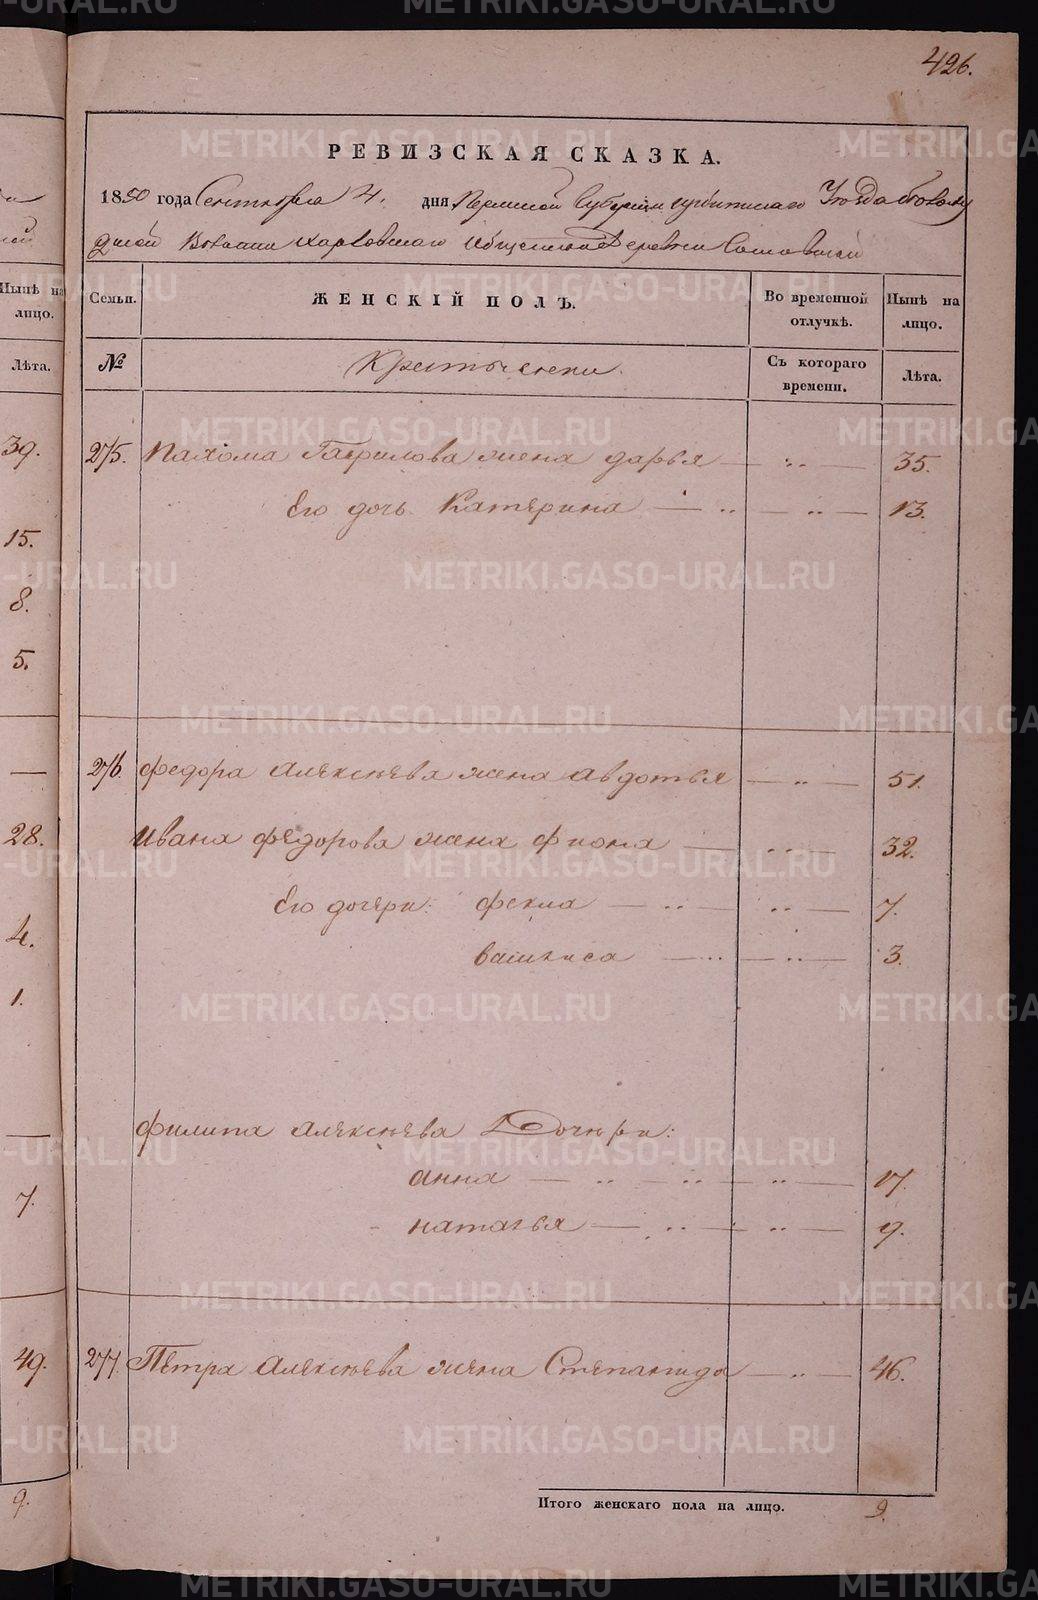 426.
РЕВИЗСКАЯ СКАЗКА.
1850 года Сентября 4. дня Пермской Губернии Ирбитского Уезда
Волости Харловскаго Общества Деревни
Семьи. ЖЕНСКІЙ ПОЛЪ. Во временной отлучкѣ. Нынѣ на лицо.
№ Крестьянски Съ котораго времени. Лѣта.
275. Пахома Гаврилова жена дарья — „ — 35.
Его дочь Катерина — „ — „ — 13.
276. федора Алексѣева жена авдотья — „ — 51.
Ивана федорова жена фиона — „ — 32.
Его дочери: фекла — „ — „ — 7.
васильиса — „ — „ — 3.
филипа Алексѣева Дочѣри:
анна — „ — „ — „ — 17.
наталья — „ — „ — 9.
277. Пѣтра Алексѣева жена Степанида — „ — 46.
Итого женскаго пола на лицо. 9.
Нынѣ на лицо.
Лѣта.
39.
15.
8.
5.
—
28.
4.
1.
—
7.
49.
9.
METRIKI.GASO-URAL.RU